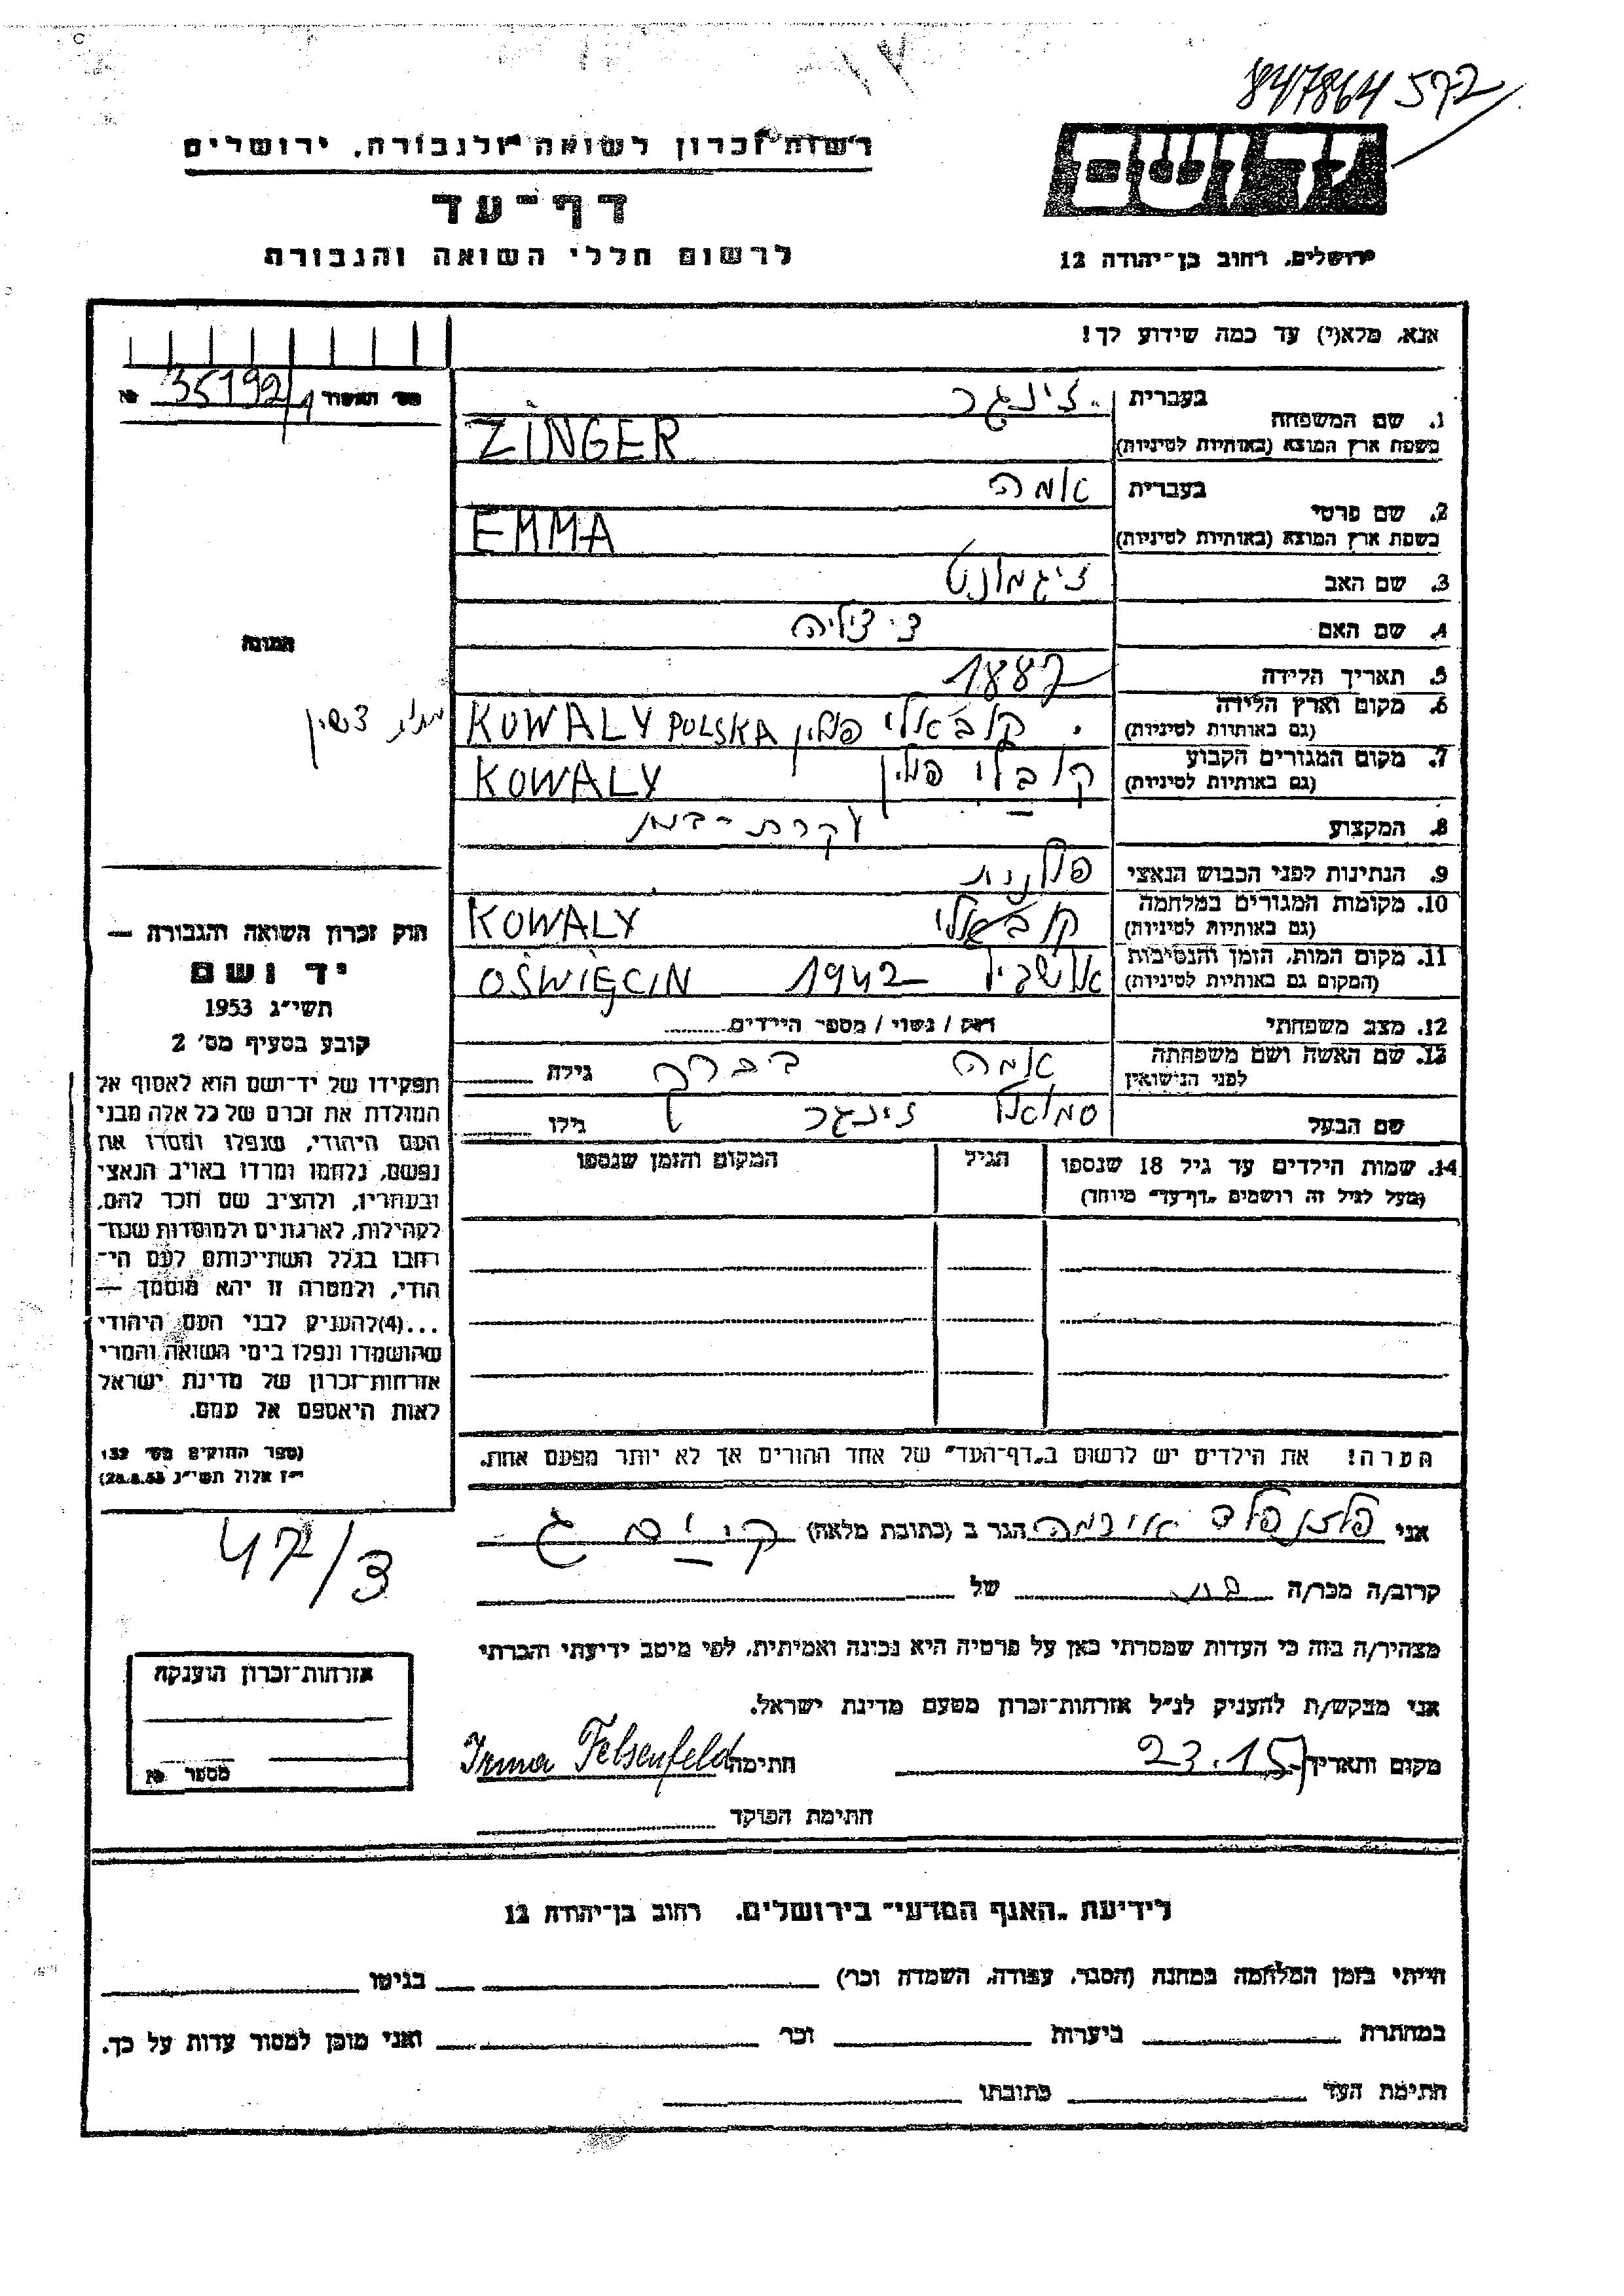 847864 572
יד ושם
רשות זכרון לשואה ולגבורה, ירושלים
דף-עד
לרשום חללי השואה והגבורה
ירושלים, רחוב בן-יהודה 12
אנא, מלא(י) עד כמה שידוע לך!
35192
1. שם המשפחה
בעברית זינגר
בשפת ארץ המוצא (באותיות לטיניות) ZINGER
2. שם פרטי
בעברית אמה
בשפת ארץ המוצא (באותיות לטיניות) EMMA
3. שם האב זיגמונט
4. שם האם צילה
5. תאריך הלידה 1887
6. מקום וארץ הלידה
(גם באותיות לטיניות) קובאלי פולין KOWALY POLSKA
7. מקום המגורים הקבוע
(גם באותיות לטיניות) קובלי פולין KOWALY
8. המקצוע עקרת-בית
9. הנתינות לפני הכבוש הנאצי פולנית
10. מקומות המגורים במלחמה
(גם באותיות לטיניות) קובאלי KOWALY
11. מקום המות, הזמן והנסיבות
(המקום גם באותיות לטיניות) 1942 OŚWIĘCIN
12. מצב משפחתי רווק / נשוי / מספר הילדים
13. שם האשה ושם משפחתה
לפני הנישואין אמה גילה
שם הבעל סמואל זינגר גילו
14. שמות הילדים עד גיל 18 שנספו הגיל המקום והזמן שנספו
(מעל לגיל זה רושמים "דף-עד" מיוחד)
הערה! את הילדים יש לרשום ב"דף-העד" של אחד ההורים אך לא יותר מפעם אחת.
התמונה
חוק זכרון השואה והגבורה —
יד ושם
תשי"ג 1953
קובע בסעיף מס' 2
תפקידו של יד-ושם הוא לאסוף אל
המולדת את זכרם של כל אלה מבני
העם היהודי, שנפלו ומסרו את
נפשם, נלחמו ומרדו באויב הנאצי
ובעוזריו, ולהציב שם וזכר להם,
לקהילות, לארגונים ולמוסדות שנח-
רבו בגלל השתייכותם לעם הי-
הודי, ולמטרה זו יהא מוסמך —
...(4) להעניק לבני העם היהודי
שהושמדו ונפלו בימי השואה והמרי
אזרחות-זכרון של מדינת ישראל
לאות היאספם אל עמם.
(ספר החוקים מס' 132
י"ז אלול תשי"ג 28.8.53)
47/3
אני פלזנפלד אירמה הגר ב (כתובת מלאה)
קרוב/ה מכר/ה בת של
מצהיר/ה בזה כי העדות שמסרתי כאן על פרטיה היא נכונה ואמיתית, לפי מיטב ידיעתי והכרתי
אני מבקש/ת להעניק לנ"ל אזרחות-זכרון מטעם מדינת ישראל.
מקום ותאריך חתימה Irma Felsenfeld
חתימת הפוקד
אזרחות-זכרון הוענקה
מספר
לידיעת "האגף המדעי" בירושלים, רחוב בן-יהודה 12
הייתי בזמן המלחמה במחנה (הסגר, עבודה, השמדה וכר') בגיטו
במחתרת ביערות וכר' ואני מוכן למסור עדות על כך.
חתימת העד כתובתו